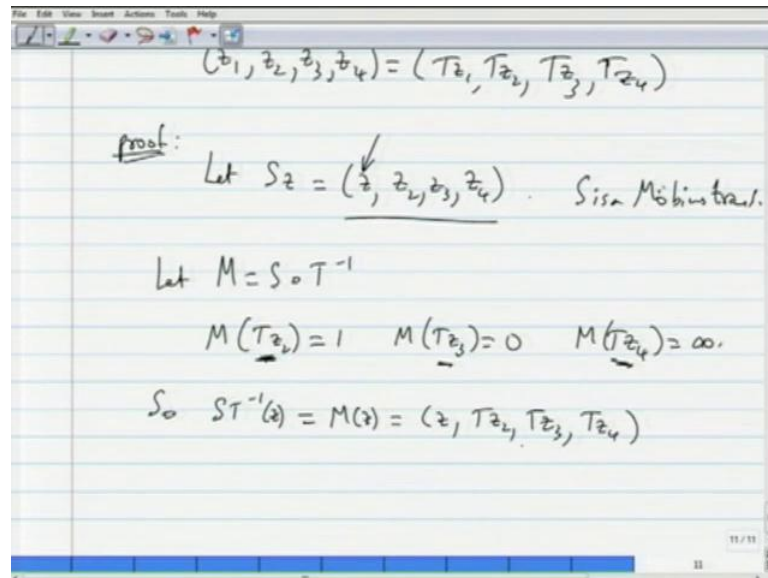 File Edit View Insert Actions Tools Help
(z₁, z₂, z₃, z₄) = (Tz₁, Tz₂, Tz₃, Tz₄)
proof:
Let Sz = (z, z₂, z₃, z₄). S is a Möbius trans.
Let M = S∘T⁻¹
M(Tz₂) = 1 M(Tz₃) = 0 M(Tz₄) = ∞.
So ST⁻¹(z) = M(z) = (z, Tz₂, Tz₃, Tz₄)
11 / 11
11